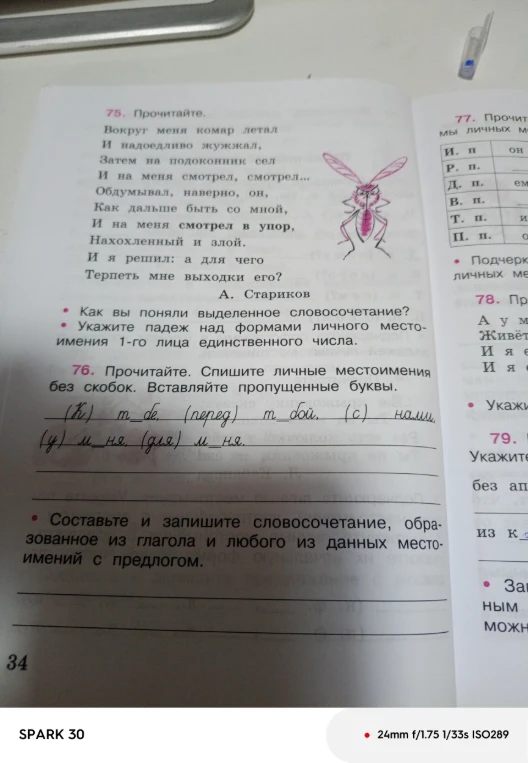 75. Прочитайте.
Вокруг меня комар летал
И надоедливо жужжал,
Затем на подоконник сел
И на меня смотрел, смотрел...
Обдумывал, наверно, он,
Как дальше быть со мной,
И на меня смотрел в упор,
Нахохленный и злой.
И я решил: а для чего
Терпеть мне выходки его?
А. Стариков
• Как вы поняли выделенное словосочетание?
• Укажите падеж над формами личного место-
имения 1-го лица единственного числа.
76. Прочитайте. Спишите личные местоимения
без скобок. Вставляйте пропущенные буквы.
(К) т_бе, (перед) т_бой, (с) нами,
(у) м_ня, (для) м_ня.
• Составьте и запишите словосочетание, обра-
зованное из глагола и любого из данных место-
имений с предлогом.
34
77. Прочит
мы личных м
И. п он
Р. п.
Д. п. ем
В. п.
Т. п. и
П. п. о
• Подчерк
личных ме
78. Пр
А у м
Живёт
И я
И я
• Укажи
79.
Укажите
без ап
из к
• За
ным
можн
SPARK 30
24mm f/1.75 1/33s ISO289